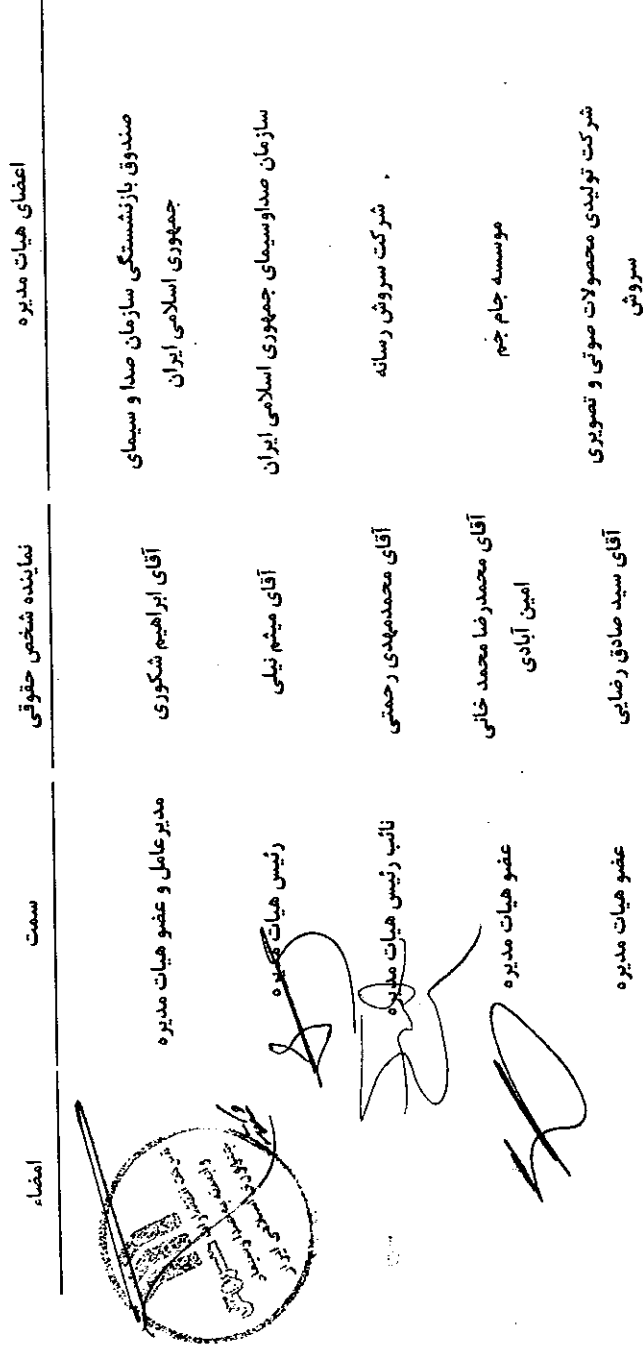 اعضای هیات مدیره	نماینده شخص حقوقی	سمت	امضاء
صندوق بازنشستگی سازمان صدا و سیمای	آقای ابراهیم شکوری	مدیرعامل و عضو هیات مدیره
جمهوری اسلامی ایران
سازمان صداوسیمای جمهوری اسلامی ایران	آقای میثم نیلی	رئیس هیات مدیره
شرکت سروش رسانه	آقای محمدمهدی رحمتی	نائب رئیس هیات مدیره
موسسه جام جم	آقای محمدرضا محمد خانی	عضو هیات مدیره
امین آبادی
شرکت تولیدی محصولات صوتی و تصویری	آقای سید صادق رضایی	عضو هیات مدیره
سروش